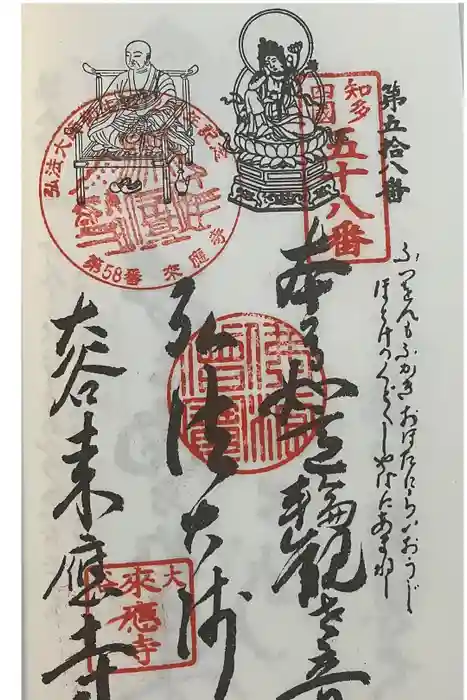 第五拾八番
知多
四国
五十八番
ふつをんもふかきおほたにらいおうじ
ほとけのくどくしやばにあまねし
本尊如意輪観世音
弘法大師
大谷来應寺
第58番 来應寺
佛法僧寶
大谷
來應寺